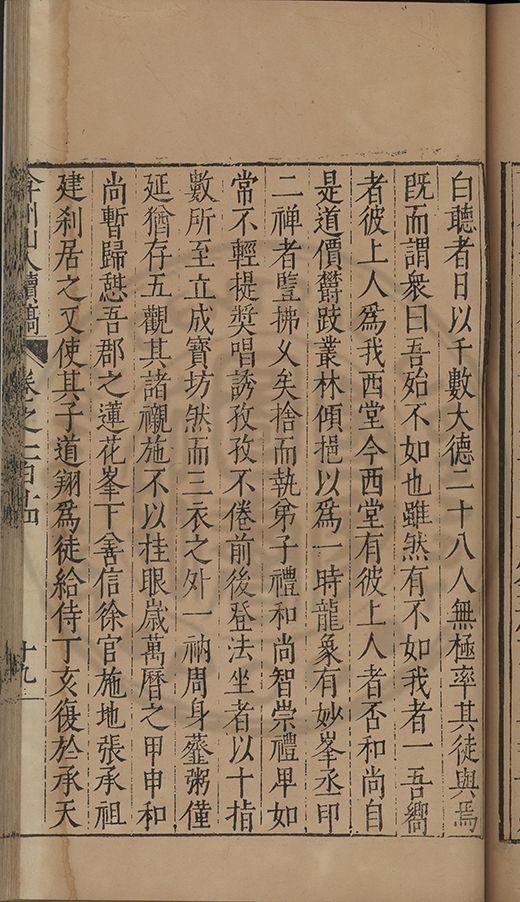 白聽者日以千數大德二十八人無極率其徒與焉
旣而謂衆曰吾殆不如也雖然有不如我者一吾嚮
者彼上人爲我西堂今西堂有彼上人者否和尚自
是道價欝跂叢林傾挹以爲一時龍象有妙峯丞印
二禪者豎拂乂矣捨而執弟子禮和尚智崇禮卑如
常不輕提奬唱誘孜孜不倦前後登法坐者以十指
數所至立成寳坊然而三衣之外一衲周身虀粥僅
延猶存五觀其諸襯施不以挂眼歲萬曆之甲申和
尚暫歸憇吾郡之蓮花峯下善信徐官施地張承祖
建刹居之又使其子道翔爲徒給侍丁亥復於承天
弇州山人續稿 卷之一百十四 十九